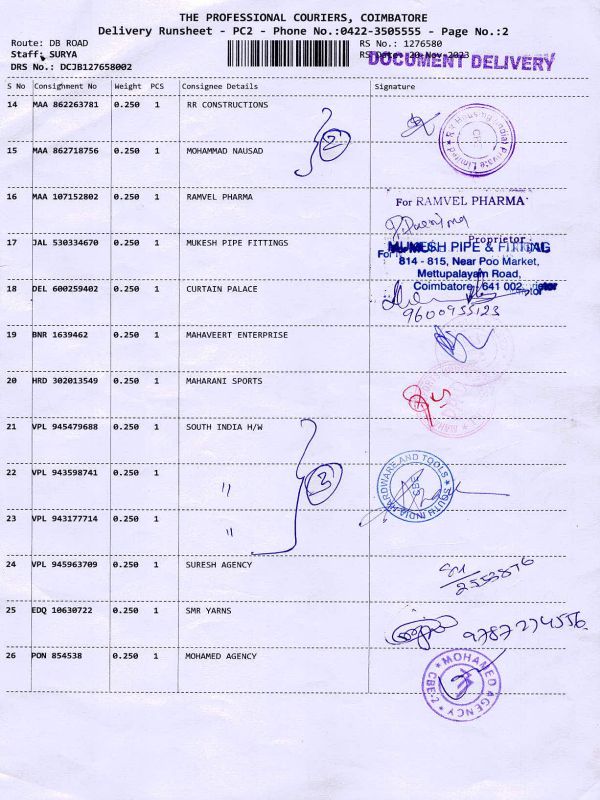 THE PROFESSIONAL COURIERS, COIMBATORE
Delivery Runsheet - PC2 - Phone No.:0422-3505555 - Page No.:2
Route: DB ROAD
RS No.: 1276580
Staff: SURYA
RS Date: 20-Nov-2023
DOCUMENT DELIVERY
DRS No.: DCJB127658002
S No Consignment No Weight PCS Consignee Details Signature
14 MAA 862263781 0.250 1 RR CONSTRUCTIONS
2
15 MAA 862718756 0.250 1 MOHAMMAD NAUSAD
Private Limited
16 MAA 107152802 0.250 1 RAMVEL PHARMA
For RAMVEL PHARMA
Proprietor
17 JAL 530334670 0.250 1 MUKESH PIPE FITTINGS
MUKESH PIPE & FITTING
814 - 815, Near Poo Market,
Mettupalayam Road,
Coimbatore - 641 002.
18 DEL 600259402 0.250 1 CURTAIN PALACE
9600955123
19 BNR 1639462 0.250 1 MAHAVEERT ENTERPRISE
20 HRD 302013549 0.250 1 MAHARANI SPORTS
21 VPL 945479688 0.250 1 SOUTH INDIA H/W
22 VPL 943598741 0.250 1 "
3
SOUTH INDIA HARDWARE AND TOOLS
23 VPL 943177714 0.250 1 "
24 VPL 945963709 0.250 1 SURESH AGENCY
2553876
25 EDQ 10630722 0.250 1 SMR YARNS
9787274556
26 PON 854538 0.250 1 MOHAMED AGENCY
MOHAMED AGENCY
CBE-2